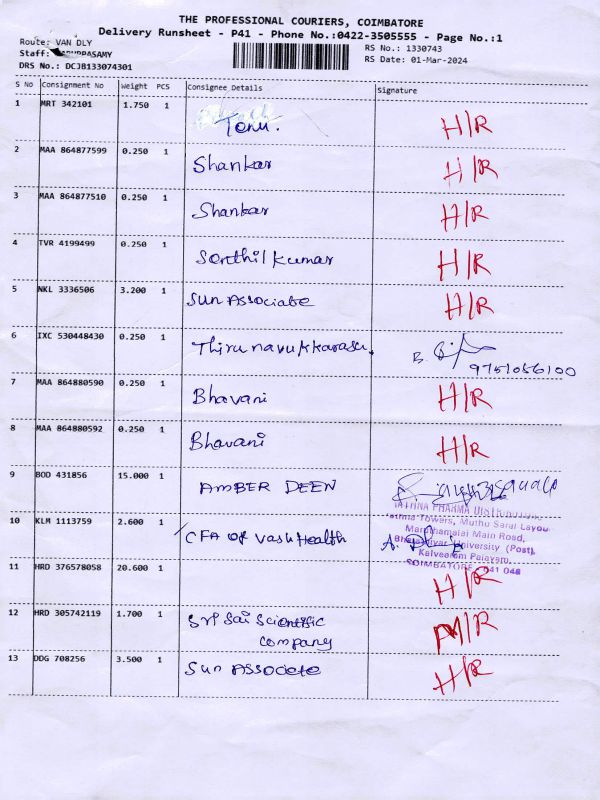 THE PROFESSIONAL COURIERS, COIMBATORE
Delivery Runsheet - P41 - Phone No.:0422-3505555 - Page No.:1
Route: VAN DLY
RS No.: 1330743
Staff:
RS Date: 01-Mar-2024
DRS No.: DCJB133074301
S No Consignment No Weight PCS Consignee Details Signature
1 MRT 342101 1.750 1 Tonu. H/R
2 MAA 864877599 0.250 1 Shankar H/R
3 MAA 864877510 0.250 1 Shankar H/R
4 TVR 4199499 0.250 1 Senthil kumar H/R
5 NKL 3336506 3.200 1 Sun Associate H/R
6 IXC 530448430 0.250 1 Thirunavukkarasu. B. 9751056100
7 MAA 864880590 0.250 1 Bhavani H/R
8 MAA 864880592 0.250 1 Bhavani H/R
9 BOD 431856 15.000 1 AMBER DEEN
PHARMA
Towers, Muthu Saral Layou
10 KLM 1113759 2.600 1 CFA of Vash Health A.
Maruthamalai Main Road,
University (Post),
Kalveeram Palayam,
COIMBATORE 641 046
11 HRD 376578058 20.600 1 H/R
12 HRD 305742119 1.700 1 Sri Sai Scientific
company H/R
13 DDG 708256 3.500 1 Sun Associete H/R